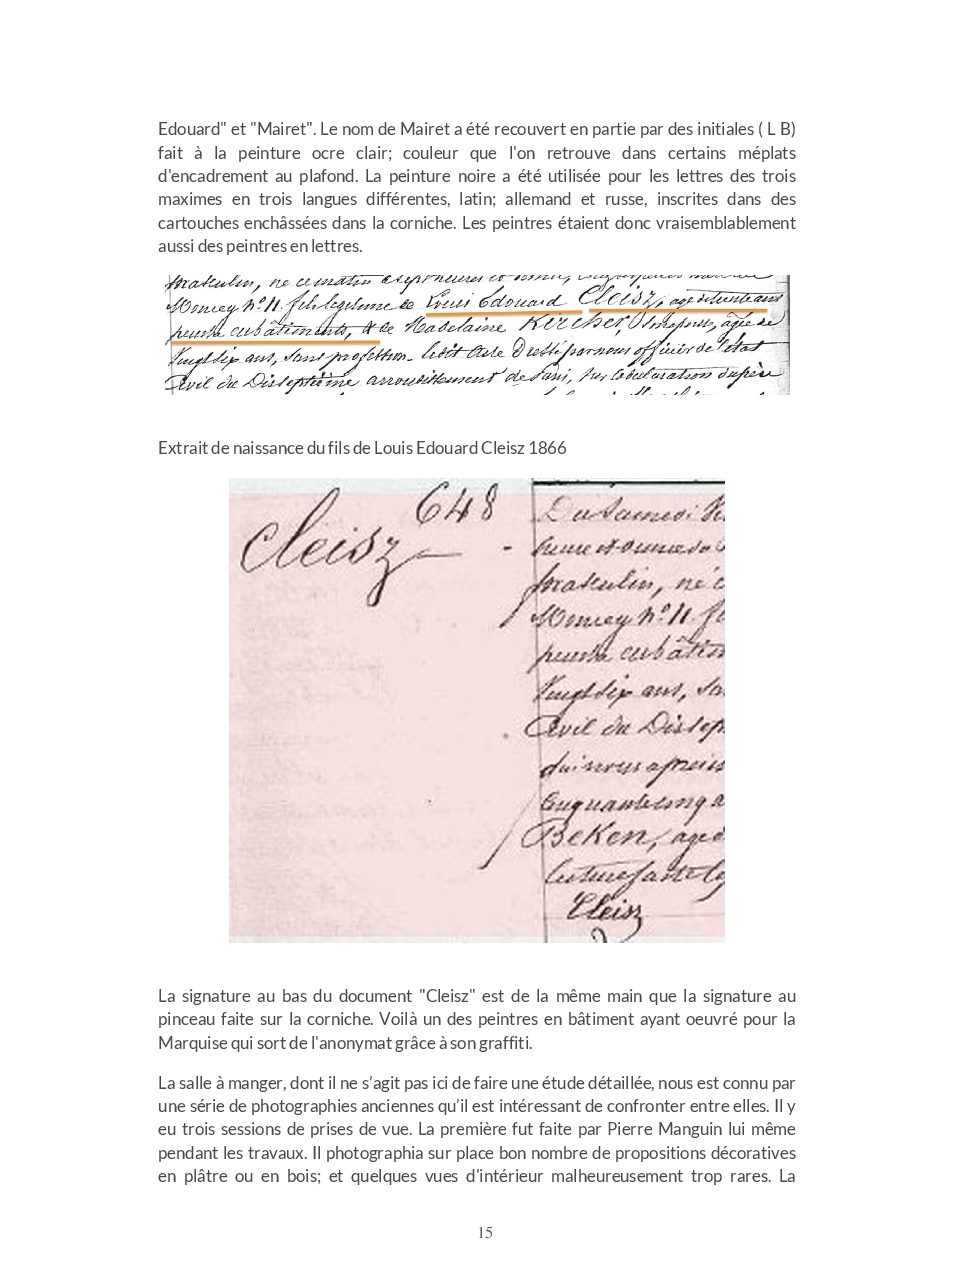 Edouard" et "Mairet". Le nom de Mairet a été recouvert en partie par des initiales ( L B)
fait à la peinture ocre clair; couleur que l'on retrouve dans certains méplats
d'encadrement au plafond. La peinture noire a été utilisée pour les lettres des trois
maximes en trois langues différentes, latin; allemand et russe, inscrites dans des
cartouches enchâssées dans la corniche. Les peintres étaient donc vraisemblablement
aussi des peintres en lettres.
masculin, né ce matin
Moncey nº 11. fils légitime de Louis Edouard Cleisz, agé de trente ans
peintre en bâtiments, & de Madelaine Kircher, agée de
Vingt six ans, sans profession. Ledit acte Dressé par nous officier de l'état
Civil du Dixseptième arrondissement de Paris, sur la déclaration du père
Extrait de naissance du fils de Louis Edouard Cleisz 1866
648
Cleisz
Du Samedi
heure et
masculin, né c
Moncey nº 11. f
peintre en bâtim
Vingt six ans, sa
Civil du Dixsep
Cinquante cinq a
Beken, agé d
lecture faite
Cleisz
La signature au bas du document "Cleisz" est de la même main que la signature au
pinceau faite sur la corniche. Voilà un des peintres en bâtiment ayant oeuvré pour la
Marquise qui sort de l'anonymat grâce à son graffiti.
La salle à manger, dont il ne s’agit pas ici de faire une étude détaillée, nous est connu par
une série de photographies anciennes qu’il est intéressant de confronter entre elles. Il y
eu trois sessions de prises de vue. La première fut faite par Pierre Manguin lui même
pendant les travaux. Il photographia sur place bon nombre de propositions décoratives
en plâtre ou en bois; et quelques vues d'intérieur malheureusement trop rares. La
15